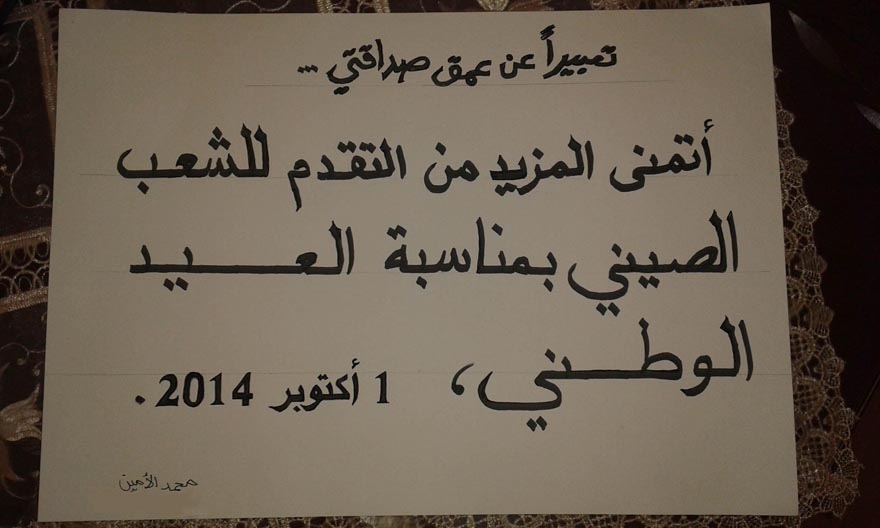 تعبيراً عن عمق صداقتي ...
أتمنى المزيد من التقدم للشعب
الصيني بمناسبة العيد
الوطني، 1 أكتوبر 2014.
محمد الأمين